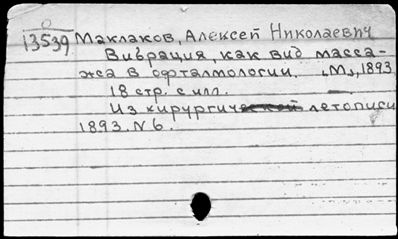 О
13539 Маклаков, Алексей Николаевич
Вибрация, как вид масса-
жа в офталмологии. "М", 1893
18 стр. с илл.
Из хирургической летописи
1893. N 6.